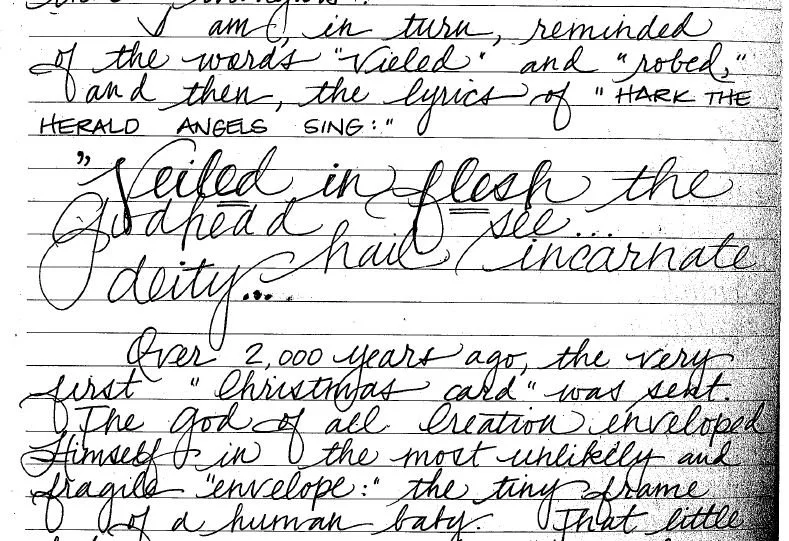 am, in turn, reminded
of the words "Vieled" and "robed,"
and then, the lyrics of "HARK THE
HERALD ANGELS SING:"
"Veiled in flesh the
Godhead see...
hail incarnate
deity...
Over 2,000 years ago, the very
first "Christmas card" was sent.
The God of all Creation enveloped
Himself in the most unlikely and
fragile "envelope:" the tiny frame
of a human baby. That little